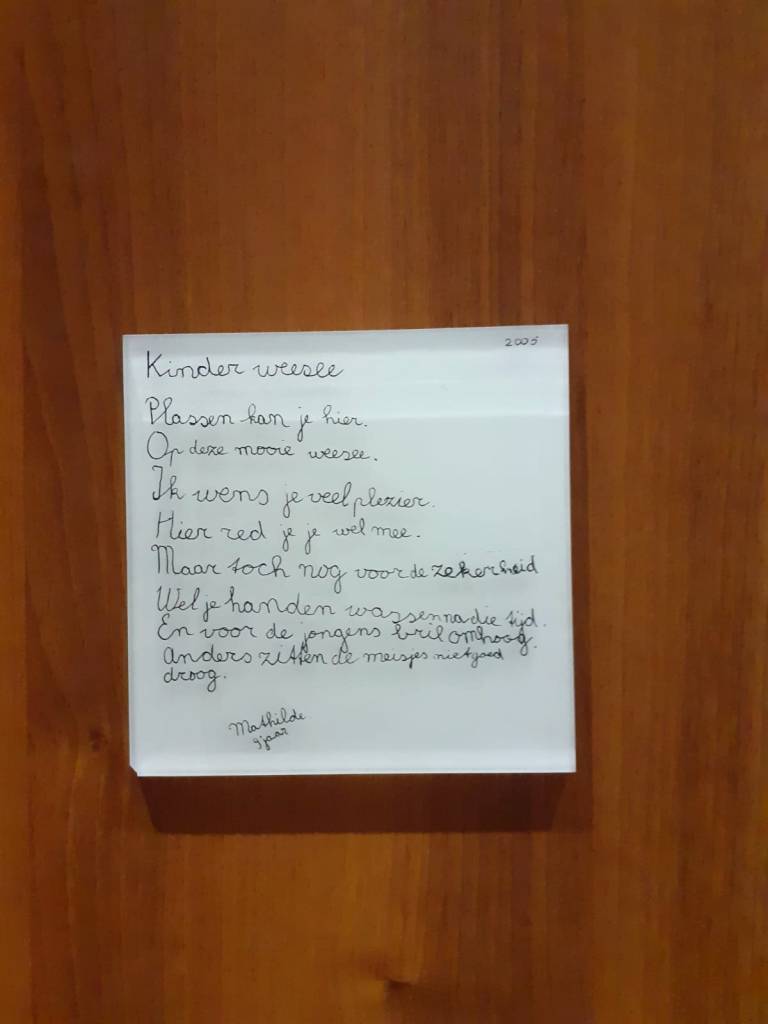 2005
Kinder weesee
Plassen kan je hier.
Op deze mooie weesee.
Ik wens je veel plezier.
Hier red je je wel mee.
Maar toch nog voor de zekerheid
Wel je handen wassen na die tijd.
En voor de jongens bril omhoog.
Anders zitten de meisjes niet goed
droog.
Mathilde
9 jaar